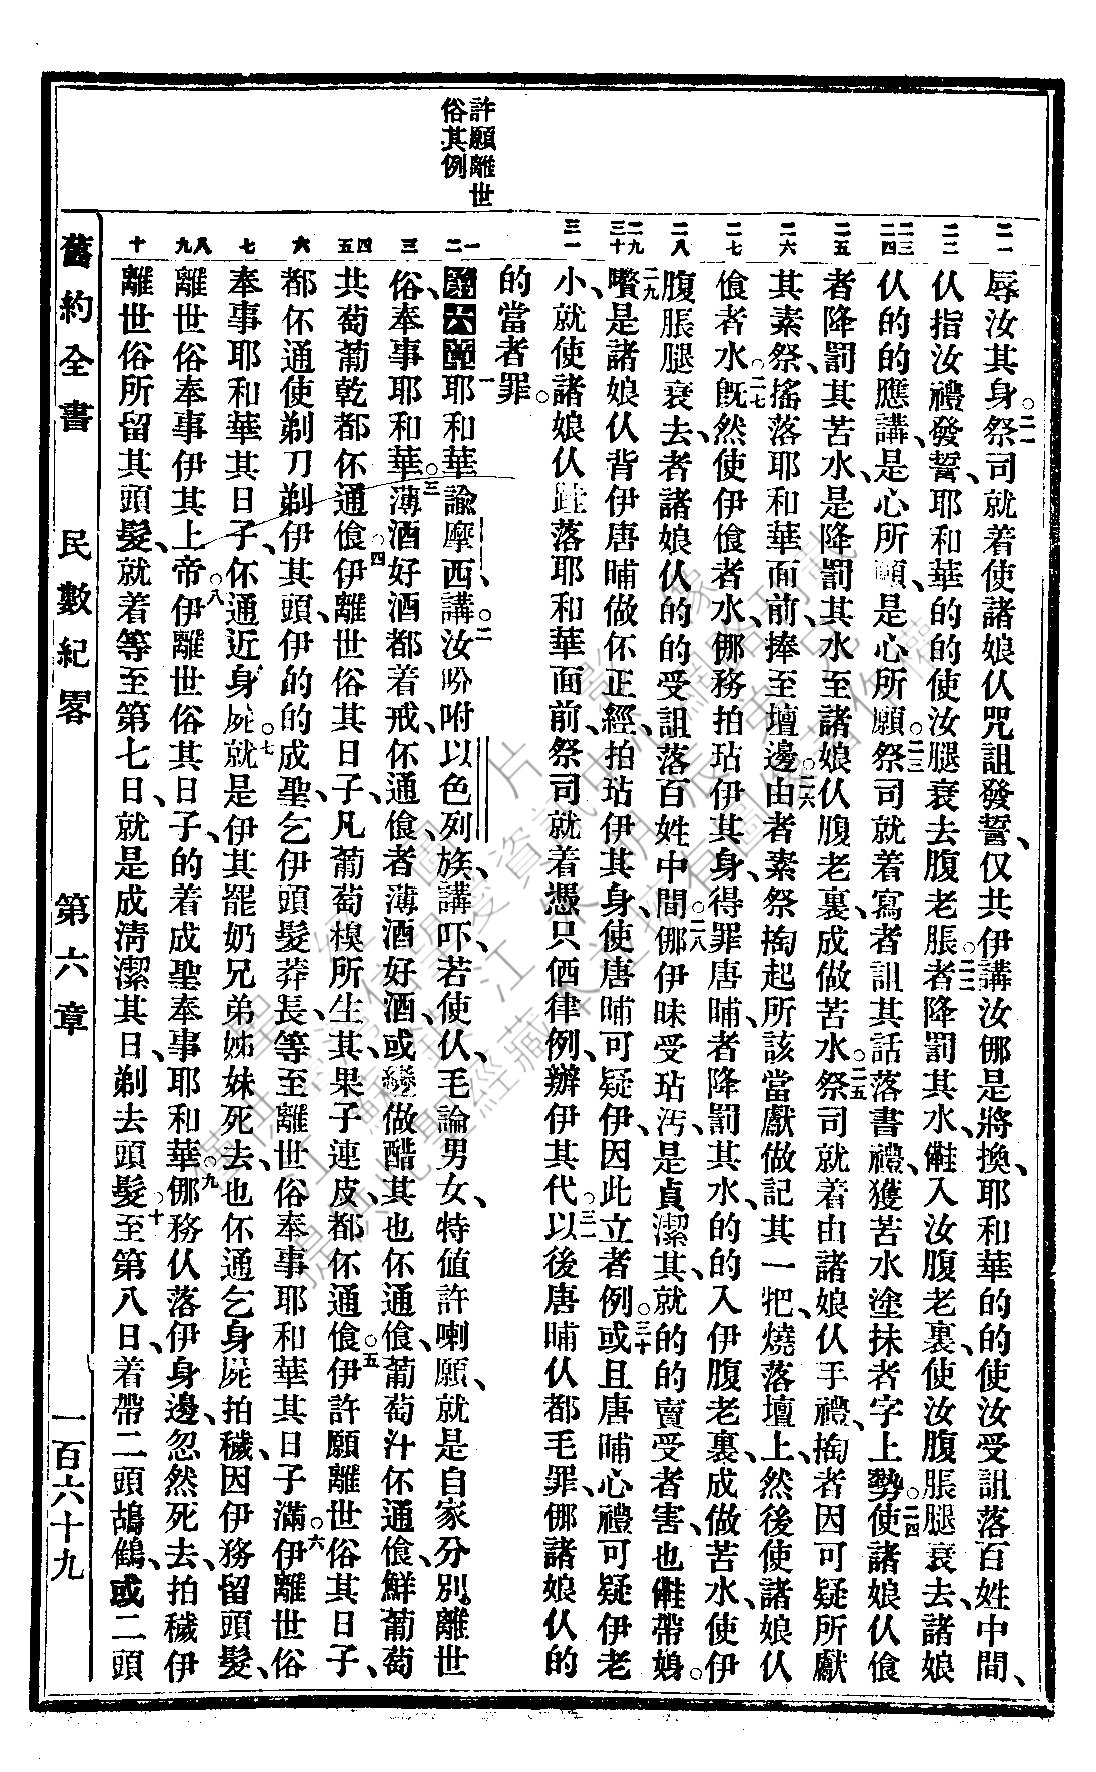 許願離世
俗其例
二一 二二 二三 二四 二五 二六 二七 二八 二九 三十 三一 一 二 三 四 五 六 七 八 九 十
辱汝其身○二一祭司就着使諸娘仈咒詛發誓、仅共伊講汝㑚是將換、耶和華的的使汝受詛落百姓中間、
仈指汝禮發誓、耶和華的的使汝腿衰去腹老脹○二二者降罰其水、㒕入汝腹老裏、使汝腹脹腿衰去、諸娘
仈的的應講、是心所願、是心所願○二三祭司就着寫者詛其話落書禮、獲苦水塗抹者字上勢○二四使諸娘仈飡
者降罰其苦水、是降罰其水至諸娘仈腹老裏、成做苦水○二五祭司就着由諸娘仈手禮、掏者因可疑所獻
其素祭、搖落耶和華面前、捧至壇邊○二六由者素祭掏起所該當獻做記其一把、燒落壇上、然後使諸娘仈
飡者水○二七旣然使伊飡者水、㑚務拍玷伊其身、得罪唐晡、者降罰其水、的的入伊腹老裏、成做苦水、使伊
腹脹腿衰去、者諸娘仈的的受詛落百姓中間○二八㑚伊昧受玷汚、是貞潔其、就的的賣受者害、也㒕帶娠○
二九嚽是諸娘仈背伊唐晡做伓正經、拍玷伊其身、使唐晡可疑伊、因此立者例○三十或且唐晡心禮可疑伊老
小、就使諸娘仈跬落耶和華面前、祭司就着憑只価律例、辦伊其代○三一以後唐晡仈都毛罪、㑚諸娘仈的
的當者罪○
第六章 一耶和華諭摩西講、○二汝吩咐以色列族、講吓、若使仈、毛論男女、特值許喇願、就是自家分別、離世
俗、奉事耶和華○三薄酒好酒都着戒、伓通飡、者薄酒好酒、或變做醋其也伓通飡、葡萄汁伓通飡、鮮葡萄
共萄葡乾都伓通飡○四伊離世俗其日子、凡葡萄模所生其果子連皮、都伓通飡○五伊許願離世俗其日子、
都伓通使剃刀剃伊其頭、伊的的成聖、乞伊頭髮莽長、等至離世俗奉事耶和華其日子滿○六伊離世俗
奉事耶和華其日子、伓通近身屍○七就是伊其罷奶兄弟姊妹死去、也伓通乞身屍拍穢、因伊務留頭髮、
離世俗奉事伊其上帝○八伊離世俗其日子、的着成聖奉事耶和華○九㑚務仈落伊身邊、忽然死去、拍穢伊
離世俗所留其頭髮、就着等至第七日、就是成淸潔其日、剃去頭髮○十至第八日、着帶二頭鴣鶴、或二頭
舊約全書 民數紀畧 第六章 一百六十九